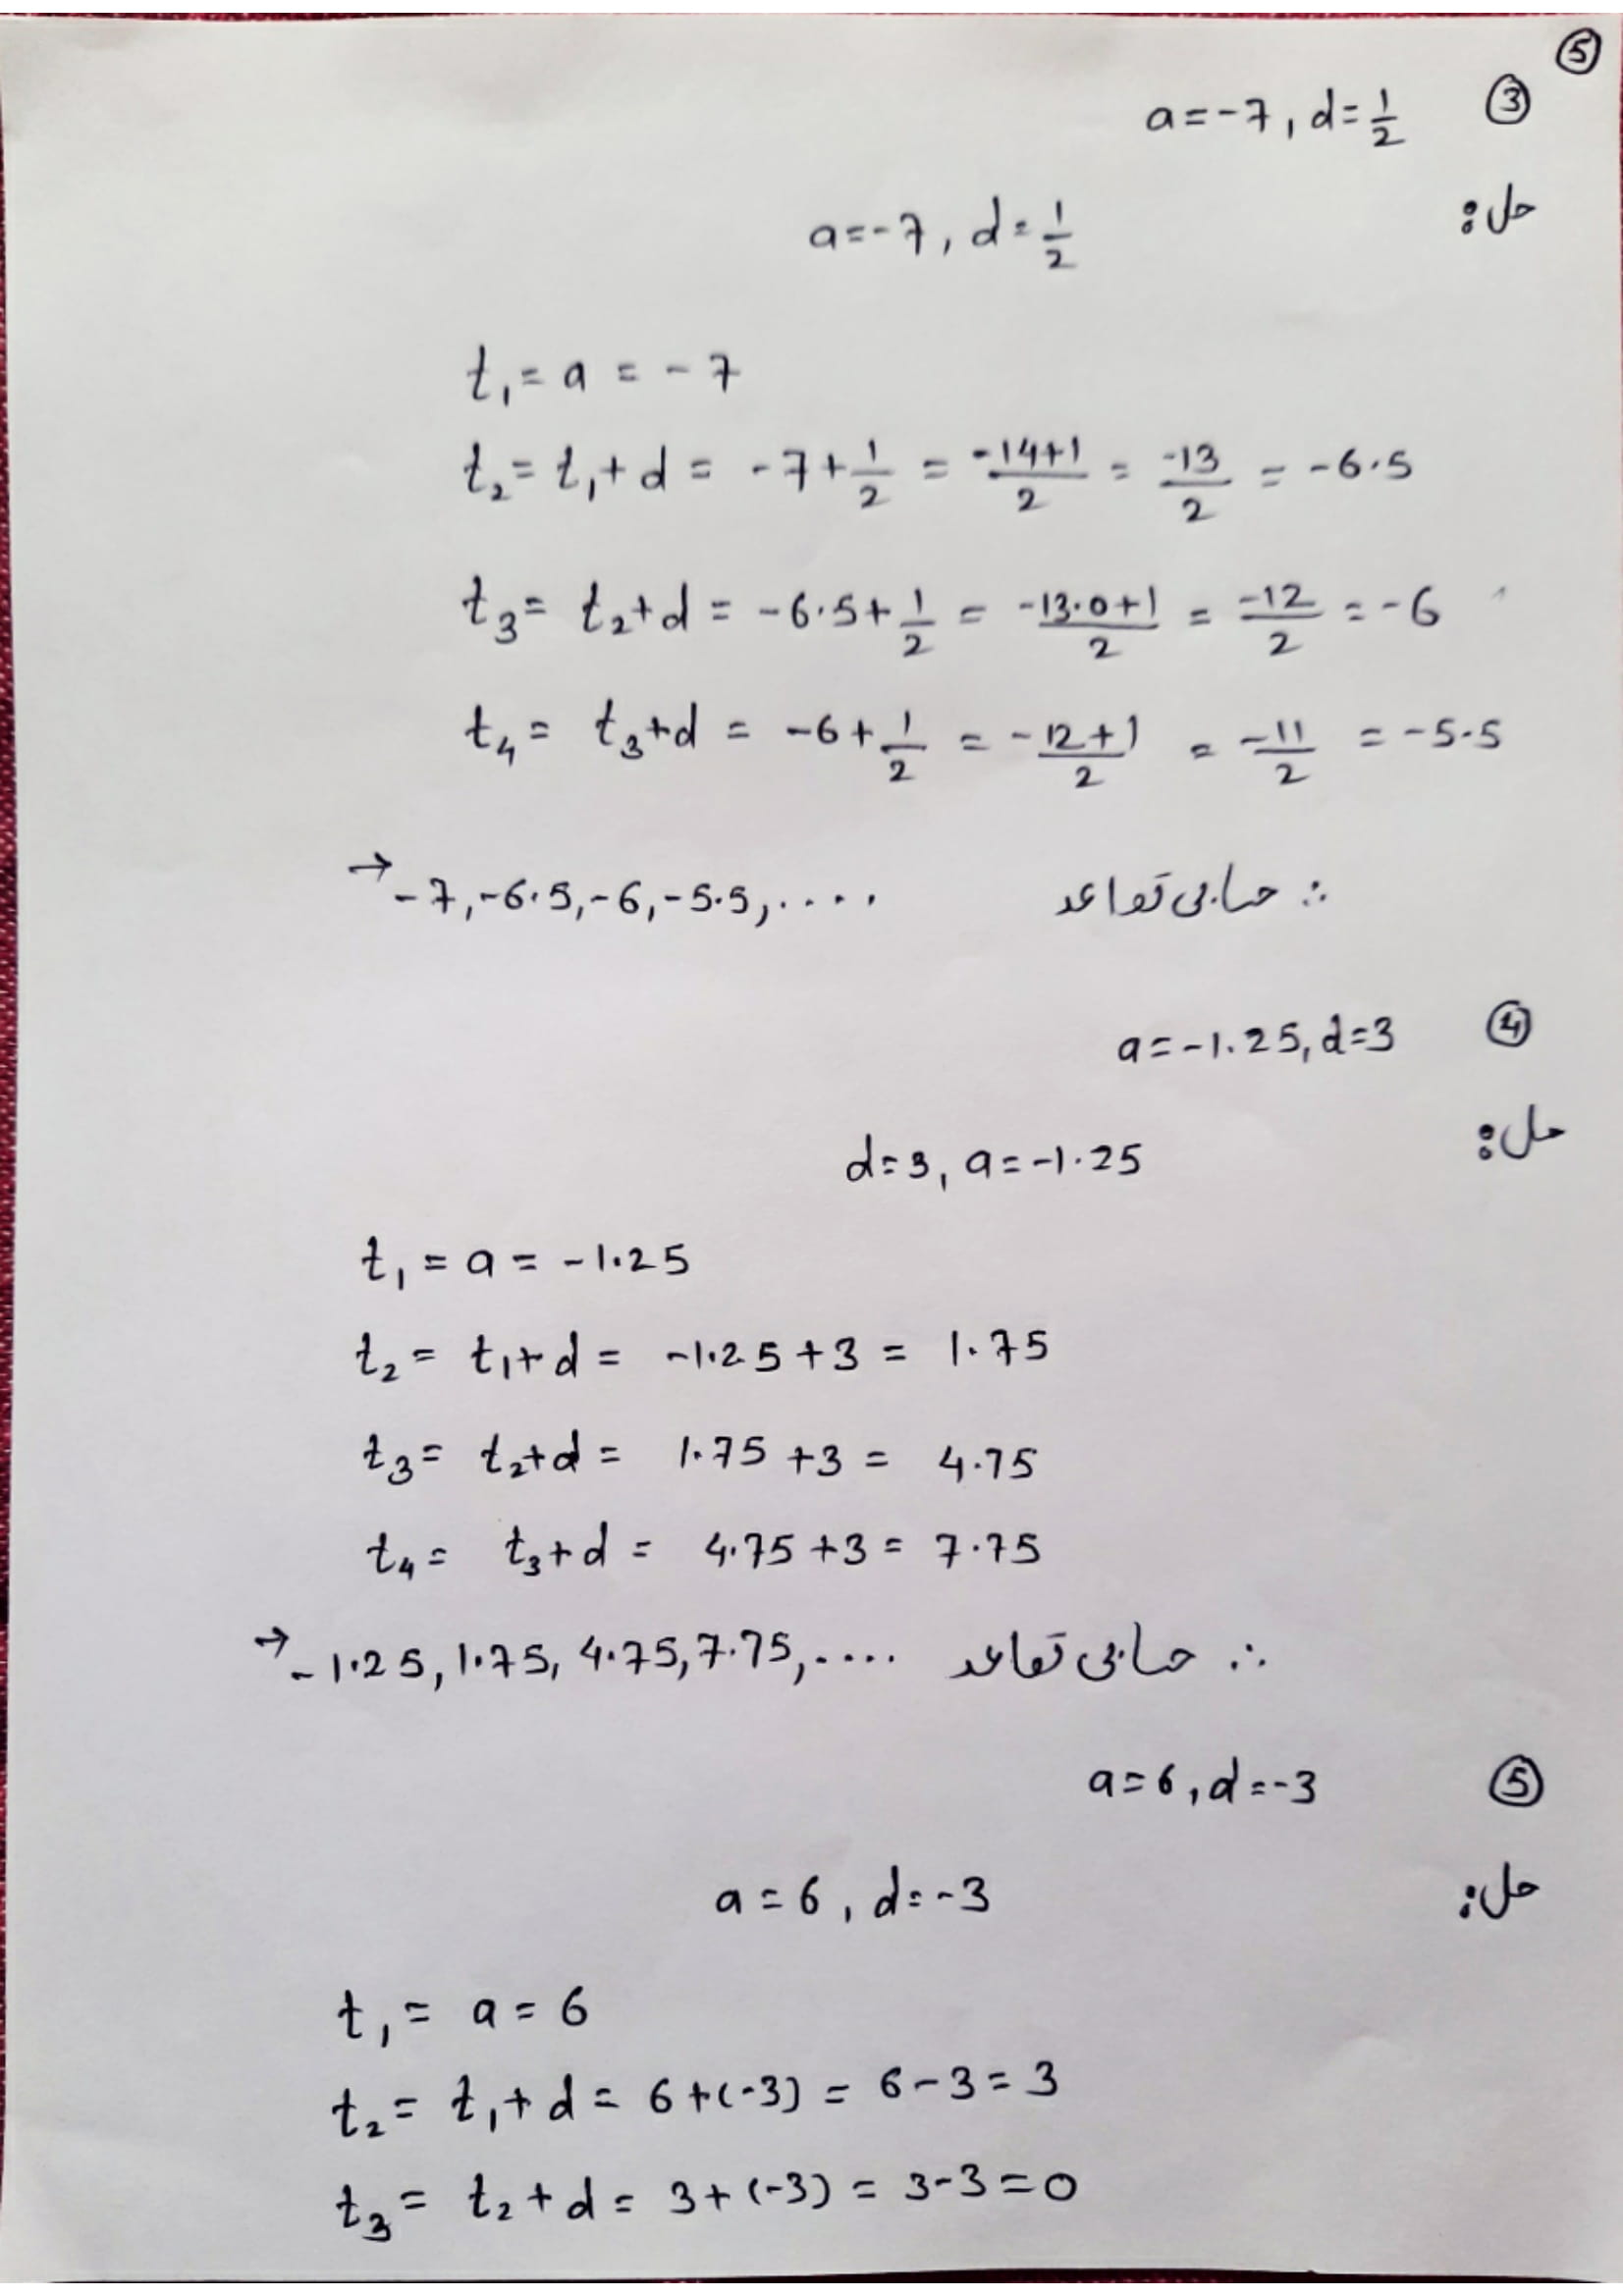 ⑤
③ a=-7, d=1/2
حل:
a=-7, d=1/2
t₁=a=-7
t₂=t₁+d=-7+1/2=(-14+1)/2=-13/2=-6.5
t₃=t₂+d=-6.5+1/2=(-13.0+1)/2=-12/2=-6
t₄=t₃+d=-6+1/2=(-12+1)/2=-11/2=-5.5
∴ حسابی تواعد → -7,-6.5,-6,-5.5,....
④ a=-1.25, d=3
حل:
d=3, a=-1.25
t₁=a=-1.25
t₂=t₁+d=-1.25+3=1.75
t₃=t₂+d=1.75+3=4.75
t₄=t₃+d=4.75+3=7.75
∴ حسابی تواعد → -1.25, 1.75, 4.75, 7.75,....
⑤ a=6, d=-3
حل:
a=6, d=-3
t₁=a=6
t₂=t₁+d=6+(-3)=6-3=3
t₃=t₂+d=3+(-3)=3-3=0